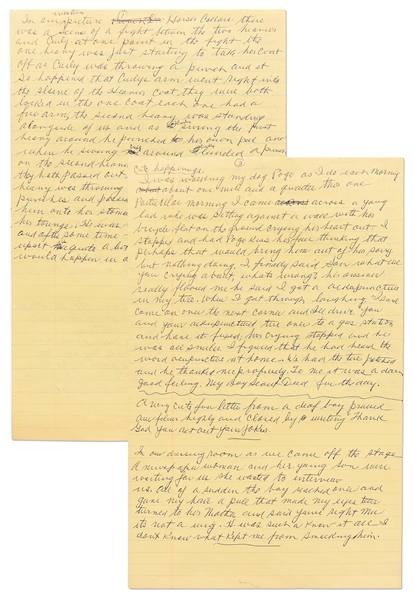 In our picture Horses Collars there
was a scene of a fight between the two heavies
and Curly at one point in the fight the
one heavy was just starting to take his coat
off as Curly was throwing a punch and it
so happened that Curlys arm went right into
the sleeve of the Heavies Coat, they were both
locked in the one coat each one had a
free arm, the second heavy was standing
alongside of us and as swung the first
heavy around he punched his own pal and
when he swung around I landed a punch
on the second heavy
they both passed out.
heavy was throwing
punches and
him onto his stoma
his tounge. He was
and after some time
upset quite a bit
would happen in a
Cute happenings.
I was walking my dog Pogo as I do each morning
about one mile and a quarter this one
particular morning I came across a young
lad who was sitting against a wall with his
bicycle flat on the ground crying his heart out I
stopped and had Pogo his face thinking that
perhaps that would bring him out of his
but nothing doing I finally said Son what are
you crying about, whats wrong? his answer
really floored me he said I got a acupuncture
in my tire. When I got through laughing I said
come on over the next corner and Ill drive you
and your acupunctured tire over to a gas station
and have it fixed, his crying stopped and he
was all smiles. I figured that he had heard the
word acupuncture at home. We had the tire patched
and he thanked me profusely. To me it was a darn
good feeling. My Boy Scout Deed for the day.
A very cute fan letter from a deaf boy praised
our films highly and closed by writing Thank
God you act out your Jokes.
In our dressing room as we came off the stage
a newspaper woman and her young son were
waiting for us she wanted to interview
us. All of a sudden the boy reached over and
gave my hair a pull that made my eyes tear
turned to his Mother and said youre right Ma
its not a wig. He was such a know it all I
dont know what kept me from smacking him.